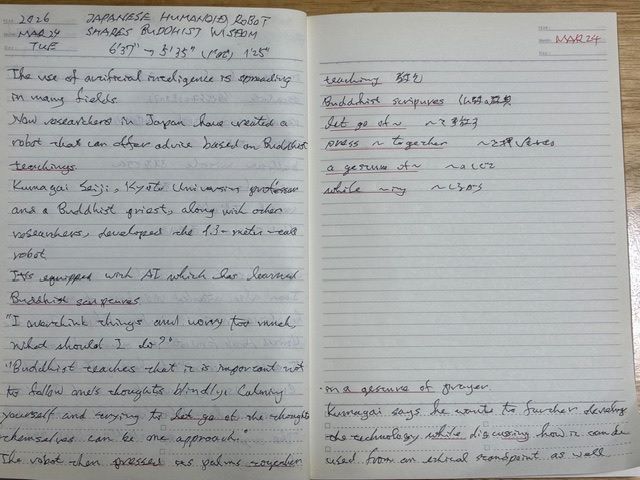 2026
MAR 24
TUE
JAPANESE HUMANOID ROBOT
SHARES BUDDHIST WISDOM
6'37" → 5'35" 1'25"
The use of artificial intelligence is spreading
in many fields.
Now researchers in Japan have created a
robot that can offer advice based on Buddhist
teachings.
Kumagai Seiji, Kyoto University professor
and a Buddhist priest, along with other
researchers, developed the 1.3-meter-tall
robot.
It's equipped with AI which has learned
Buddhist scriptures.
"I overthink things and worry too much.
What should I do?"
"Buddhist teaches that it is important not
to follow one's thoughts blindly. Calming
yourself and trying to let go of the thoughts
themselves can be one approach."
The robot then pressed its palms together
MAR 24
teaching 教え
Buddhist scripures 仏教の教典
let go of~ ~を手放す
press ~ together
a gesture of~ ~のしぐさ
while ~ing ~しながら
in a gesture of prayer.
Kumagai says he wants to further develop
the technology while discussing how it can be
used from an ethical standpoint as well